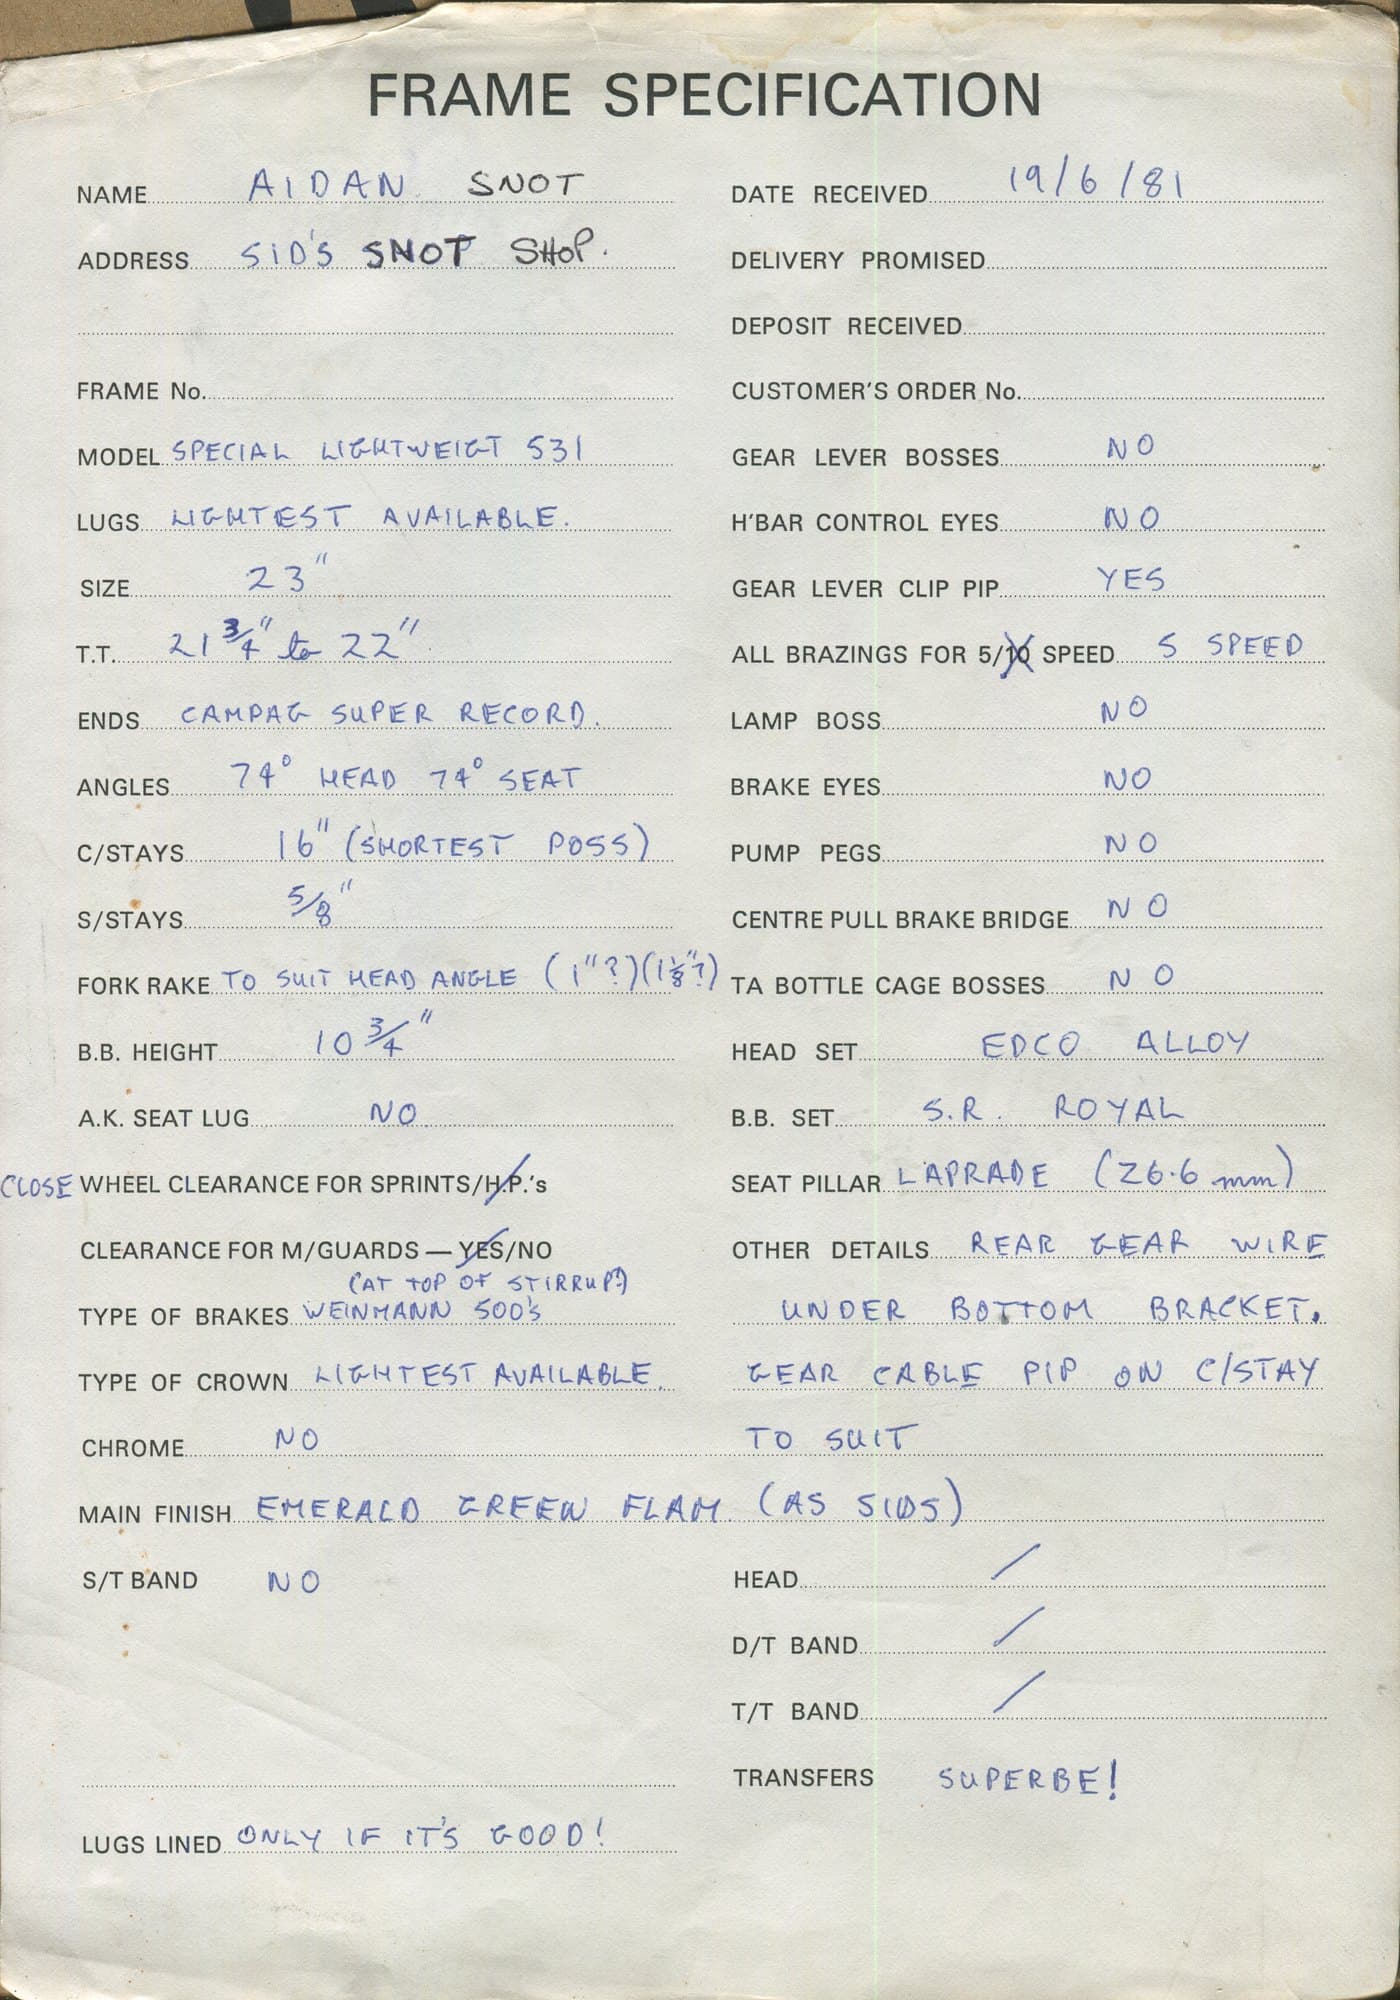 FRAME SPECIFICATION
NAME AIDAN SNOT
ADDRESS SID'S SNOT SHOP.
FRAME No.
MODEL SPECIAL LIGHTWEIGT 531
LUGS LIGHTEST AVAILABLE.
SIZE 23"
T.T. 21 3/4" to 22"
ENDS CAMPAG SUPER RECORD.
ANGLES 74° HEAD 74° SEAT
C/STAYS 16" (SHORTEST POSS)
S/STAYS 5/8"
FORK RAKE TO SUIT HEAD ANGLE (1"?)(1 1/8"?)
B.B. HEIGHT 10 3/4"
A.K. SEAT LUG NO
CLOSE WHEEL CLEARANCE FOR SPRINTS/H.P.'s
CLEARANCE FOR M/GUARDS — YES/NO
(AT TOP OF STIRRUP?)
TYPE OF BRAKES WEINMANN 500's
TYPE OF CROWN LIGHTEST AVAILABLE.
CHROME NO
MAIN FINISH EMERALD GREEN FLAM. (AS SIDS)
S/T BAND NO
LUGS LINED ONLY IF IT'S GOOD!
DATE RECEIVED 19/6/81
DELIVERY PROMISED
DEPOSIT RECEIVED
CUSTOMER'S ORDER No.
GEAR LEVER BOSSES NO
H'BAR CONTROL EYES NO
GEAR LEVER CLIP PIP YES
ALL BRAZINGS FOR 5/10 SPEED 5 SPEED
LAMP BOSS NO
BRAKE EYES NO
PUMP PEGS NO
CENTRE PULL BRAKE BRIDGE NO
TA BOTTLE CAGE BOSSES NO
HEAD SET EDCO ALLOY
B.B. SET S.R. ROYAL
SEAT PILLAR LAPRADE (26.6 mm)
OTHER DETAILS REAR GEAR WIRE
UNDER BOTTOM BRACKET.
GEAR CABLE PIP ON C/STAY
TO SUIT
HEAD /
D/T BAND /
T/T BAND /
TRANSFERS SUPERBE!